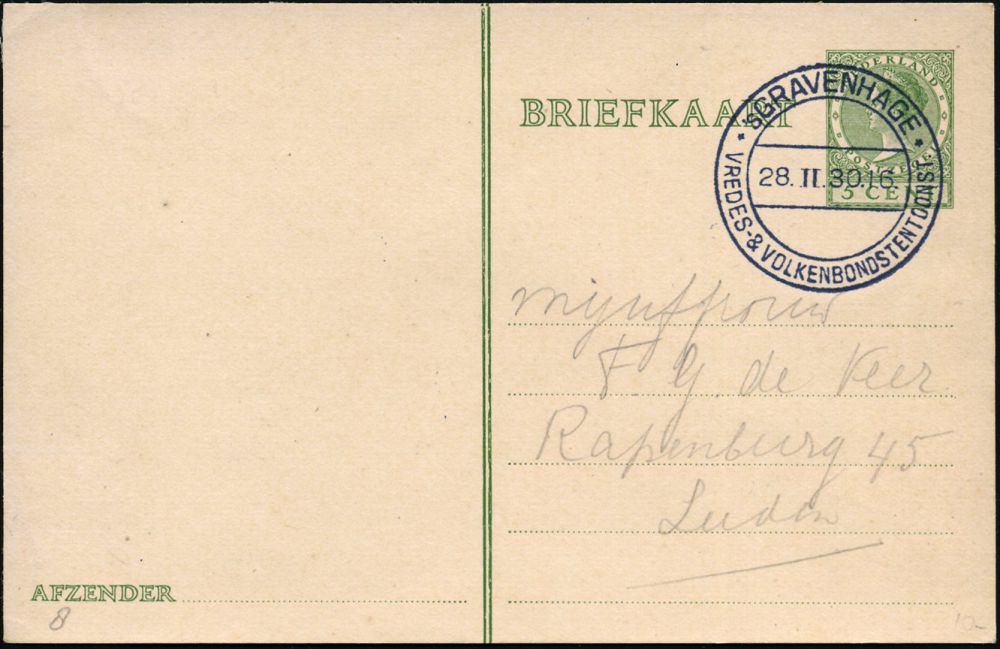 BRIEFKAART
NEDERLAND
POSTZEGEL
5 CENT
'SGRAVENHAGE
28.II.30.16
VREDES-& VOLKENBONDSTENTOONST.
Mejuffrouw
F. G. de Veer
Rapenburg 45
Leiden
AFZENDER
8
10-